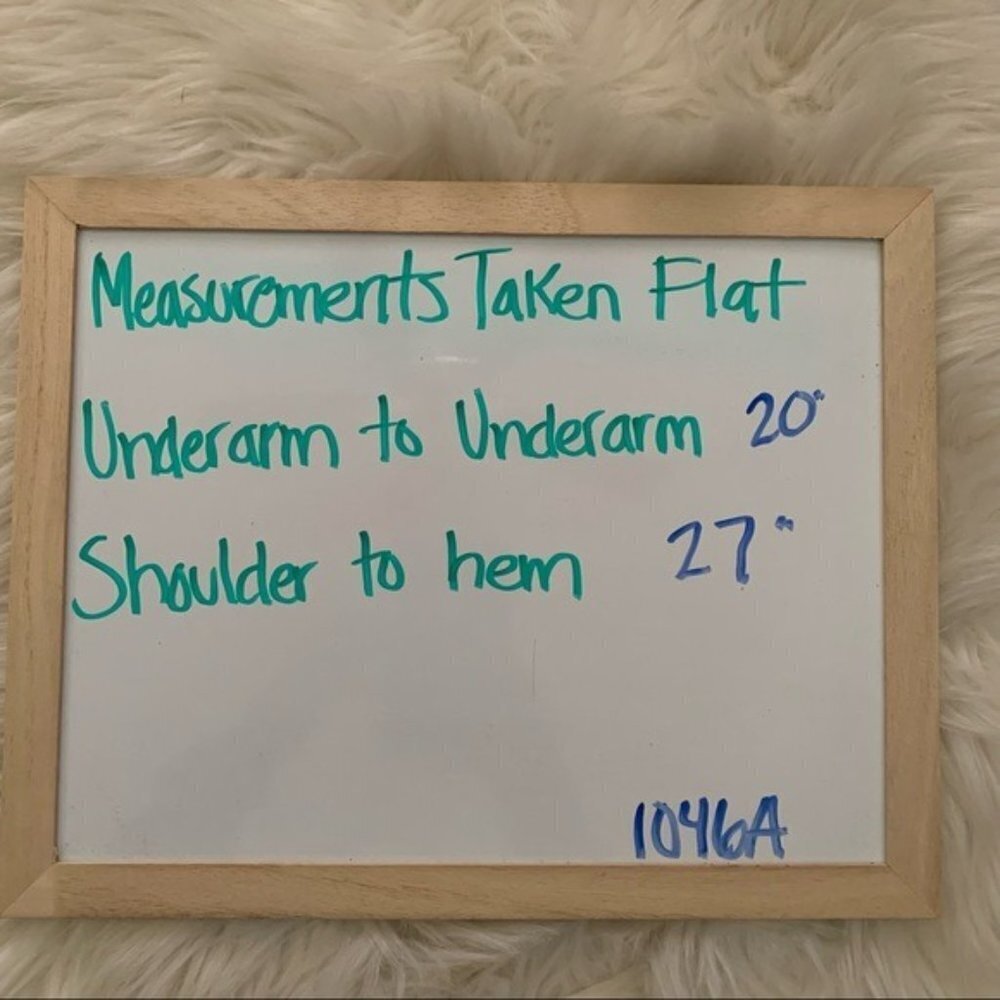 Measurements Taken Flat
Underarm to Underarm 20"
Shoulder to hem 27"
1046A